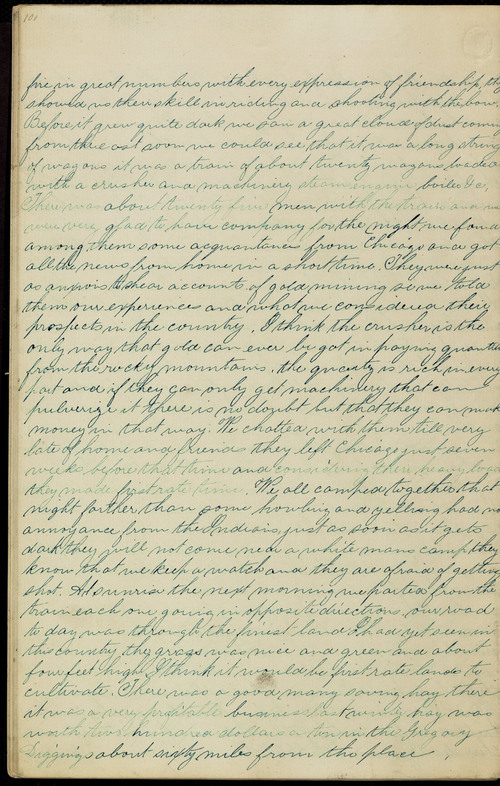 101
fire in great numbers with every expression of friendship, they
showed us their skill in riding and shooting with the bow.
Before it grew quite dark we saw a great cloud of dust coming
from the east soon we could see that it was a long string
of wagons it was a train of about twenty wagons loaded
with a crusher and machinery steam engine boiler &c,
There was about twenty five men with the train and we
were very glad to have company for the night, we found
among them some acquantance from Chicago and got
all the news from home in a short time. They were just
as anxious to hear accounts of gold mining so we told
them our experience and what we considered their
prospects in the country. I think the crusher is the
only way that gold can ever be got in paying quantities
from the rocky mountains. the quartz is rich in every
part and if they can only get machinery that can
pulverize it there is no doubt but that they can make
money in that way. We chatted with them till very
late of home and friends they left Chicago just seven
weeks before that time and considering their heavy load
they made first rate time. We all camped together that
night farther than some howling and yelling had no
annoyance from the Indians, just as soon as it gets
dark they will not come near a white mans camp they
know that we keep a watch and they are afraid of getting
shot. At sunrise the next morning we parted from the
train each one going in opposite directions, our road
to day was through the finest land I had yet seen in
this country, the grass was nice and green and about
four feet high, I think it would be first rate lands to
cultivate. There was a good many saving hay there
it was a very profitable business last winter hay was
worth two hundred dollars a ton in the Gregory
Diggings about sixty miles from the place.